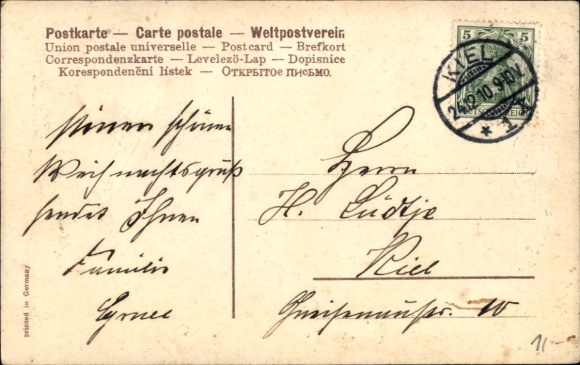 Postkarte — Carte postale — Weltpostverein
Union postale universelle — Postcard — Brefkort
Correspondenzkarte — Levelező-Lap — Dopisnice
Korespondenční lístek — Открытое письмо.
5 5
KIEL
24.12.10.9-10V.
* 1
DEUTSCHES REICH
Einen schönen
Weihnachtsgruß
sendet Ihnen
Familie
Herrn
H. Lüdtje
Kiel
Gneisenaustr. 10
printed in Germany
11-